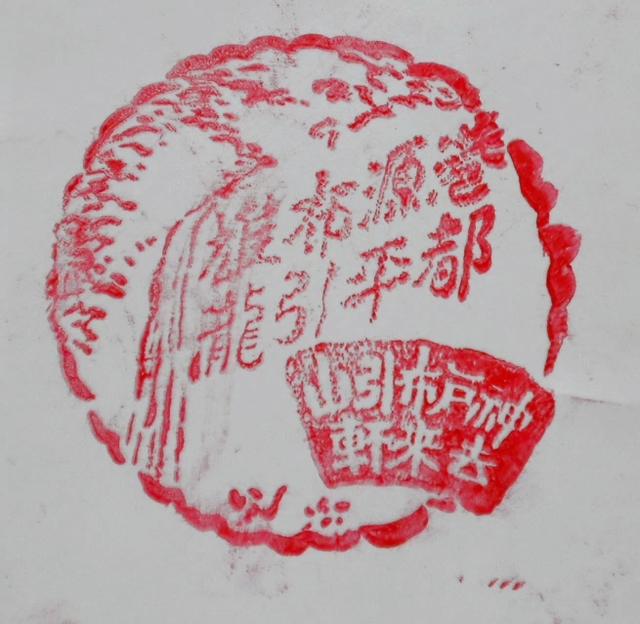 港都
源平
布引
雄龍
神戸布引山
去来軒